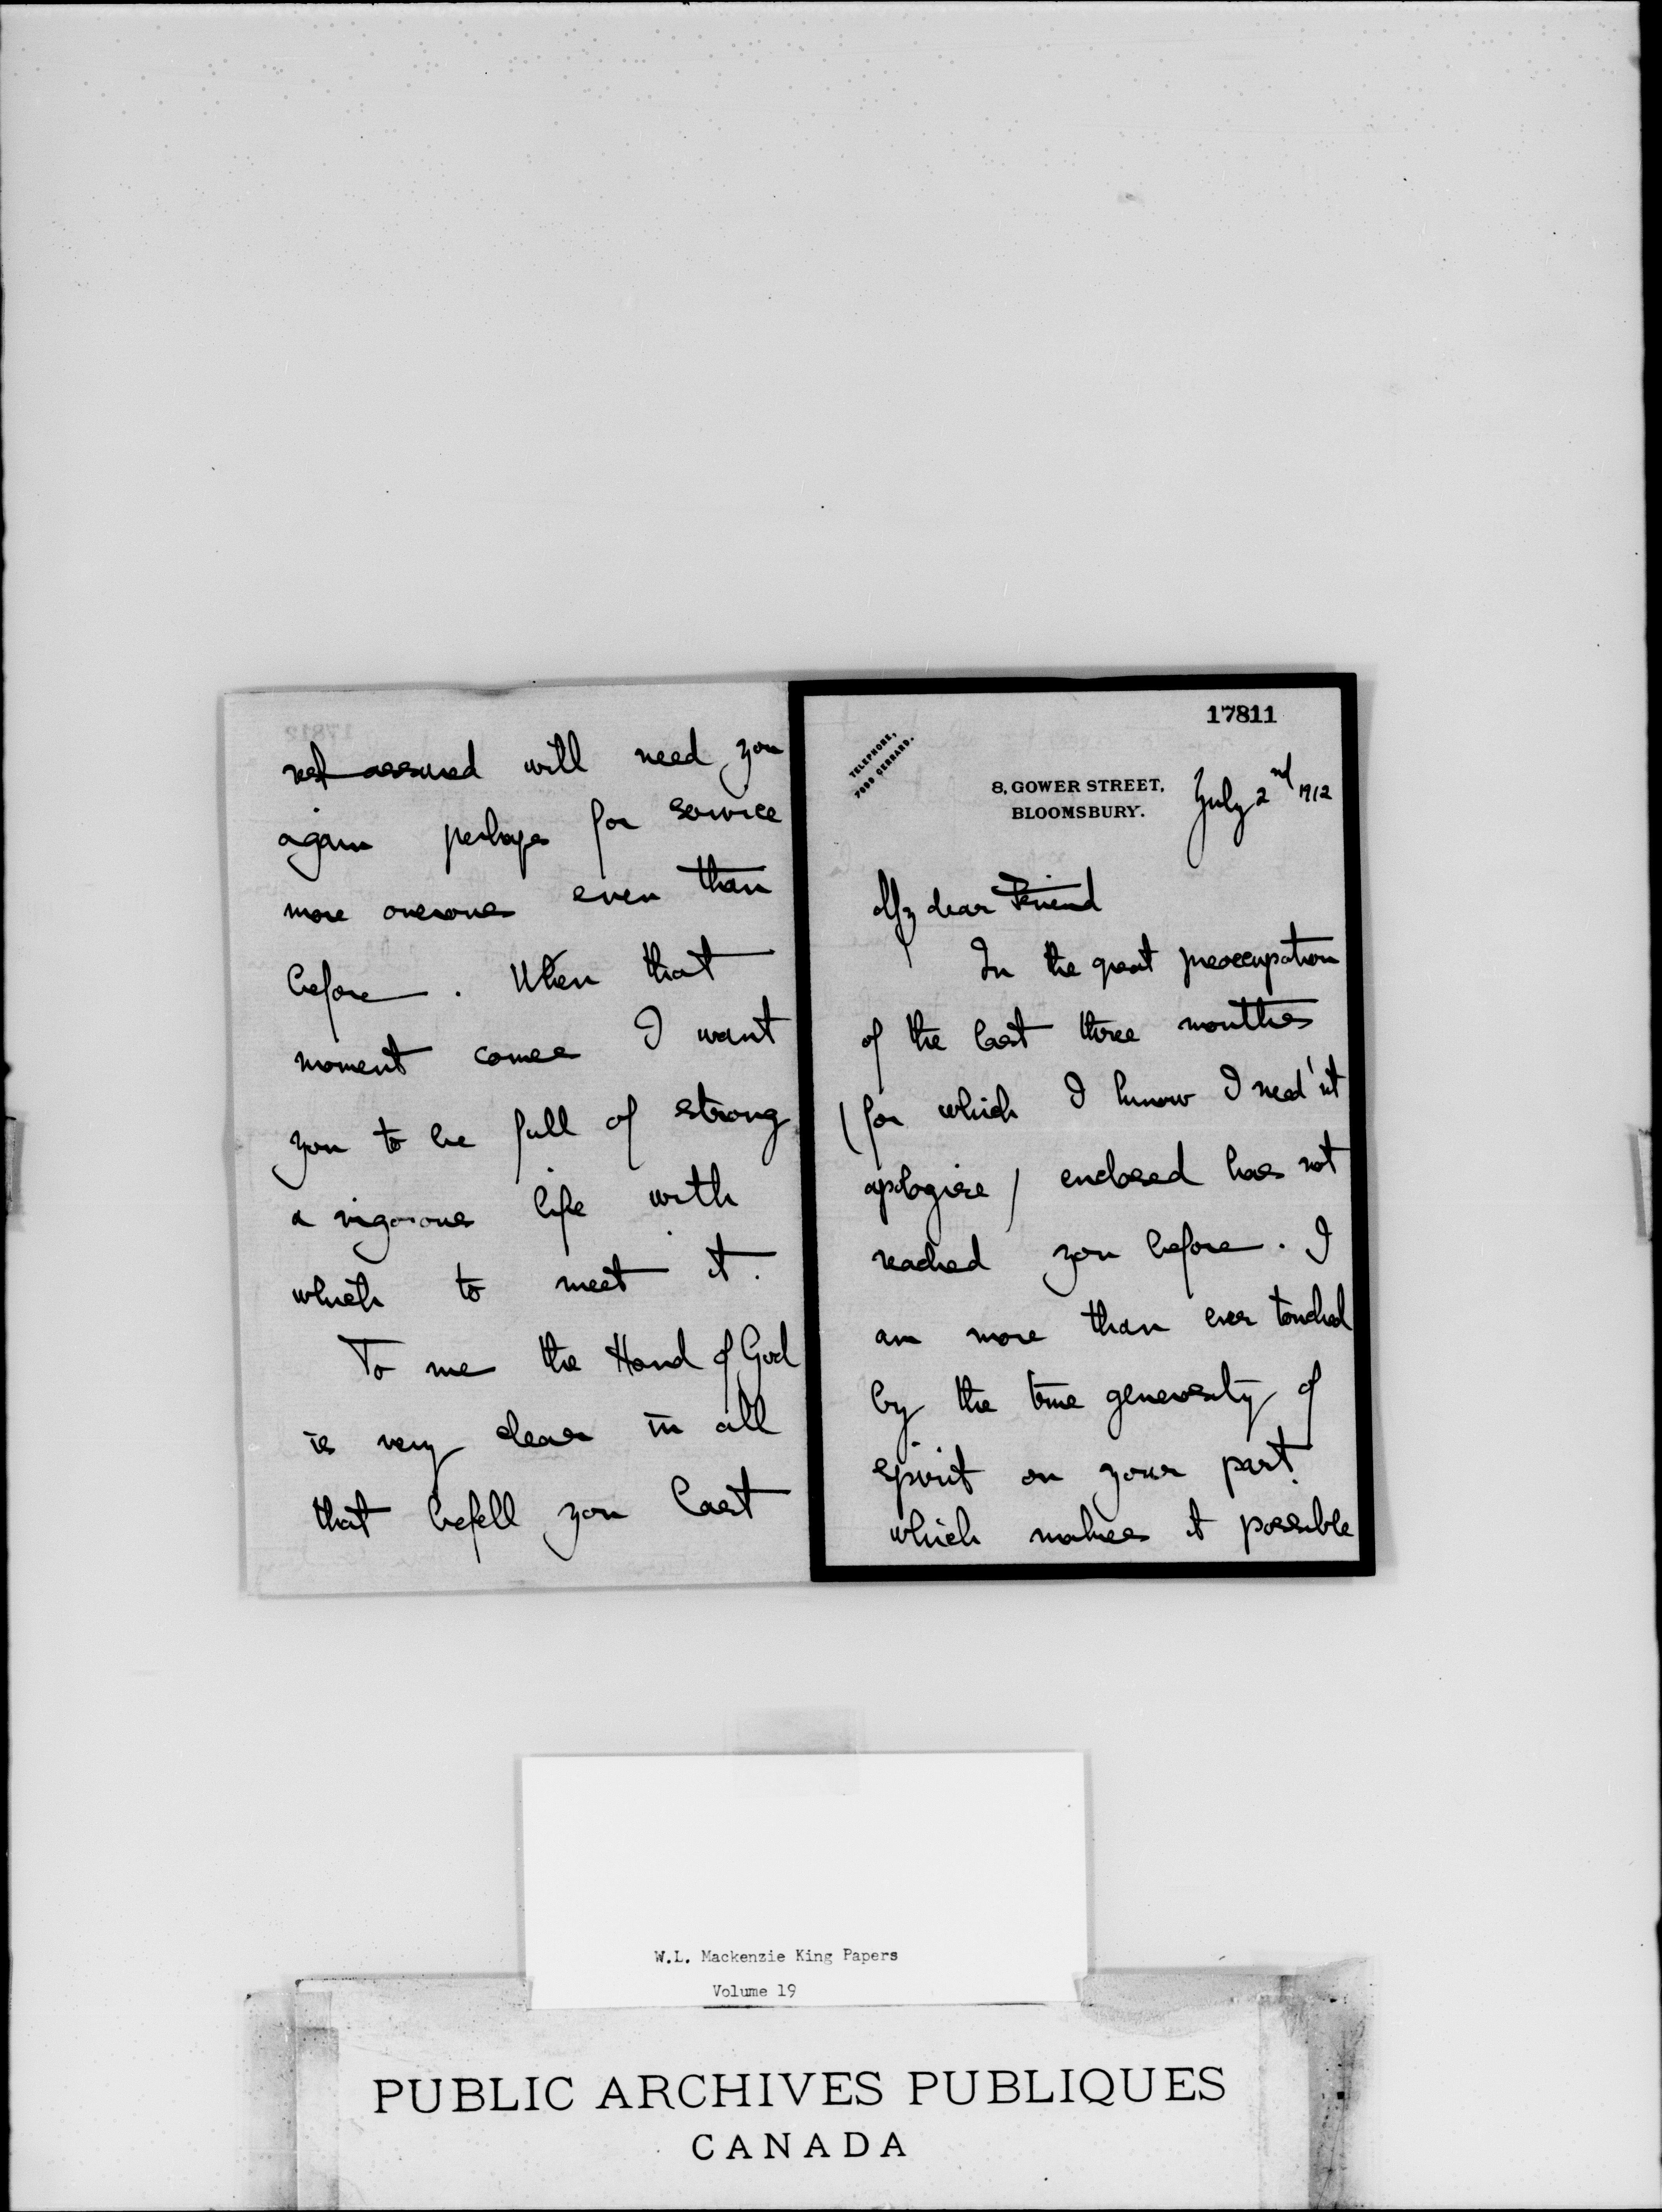 rest assured will need you
again perhaps for service
more onerous even than
before. When that
moment comes I want
you to be full of strong
a vigorous life with
which to meet it.
To me the Hand of God
is very clear in all
that befell you last
17811
TELEPHONE,
GERRARD.
8, GOWER STREET,
BLOOMSBURY.
July 2nd 1912
My dear Friend
In the great preoccupation
of the last three months
(for which I know I need'nt
apologise) enclosed has not
reached you before. I
am more than ever touched
by the true generosity of
spirit on your part
which makes it possible
W.L. Mackenzie King Papers
Volume 19
PUBLIC ARCHIVES PUBLIQUES
CANADA